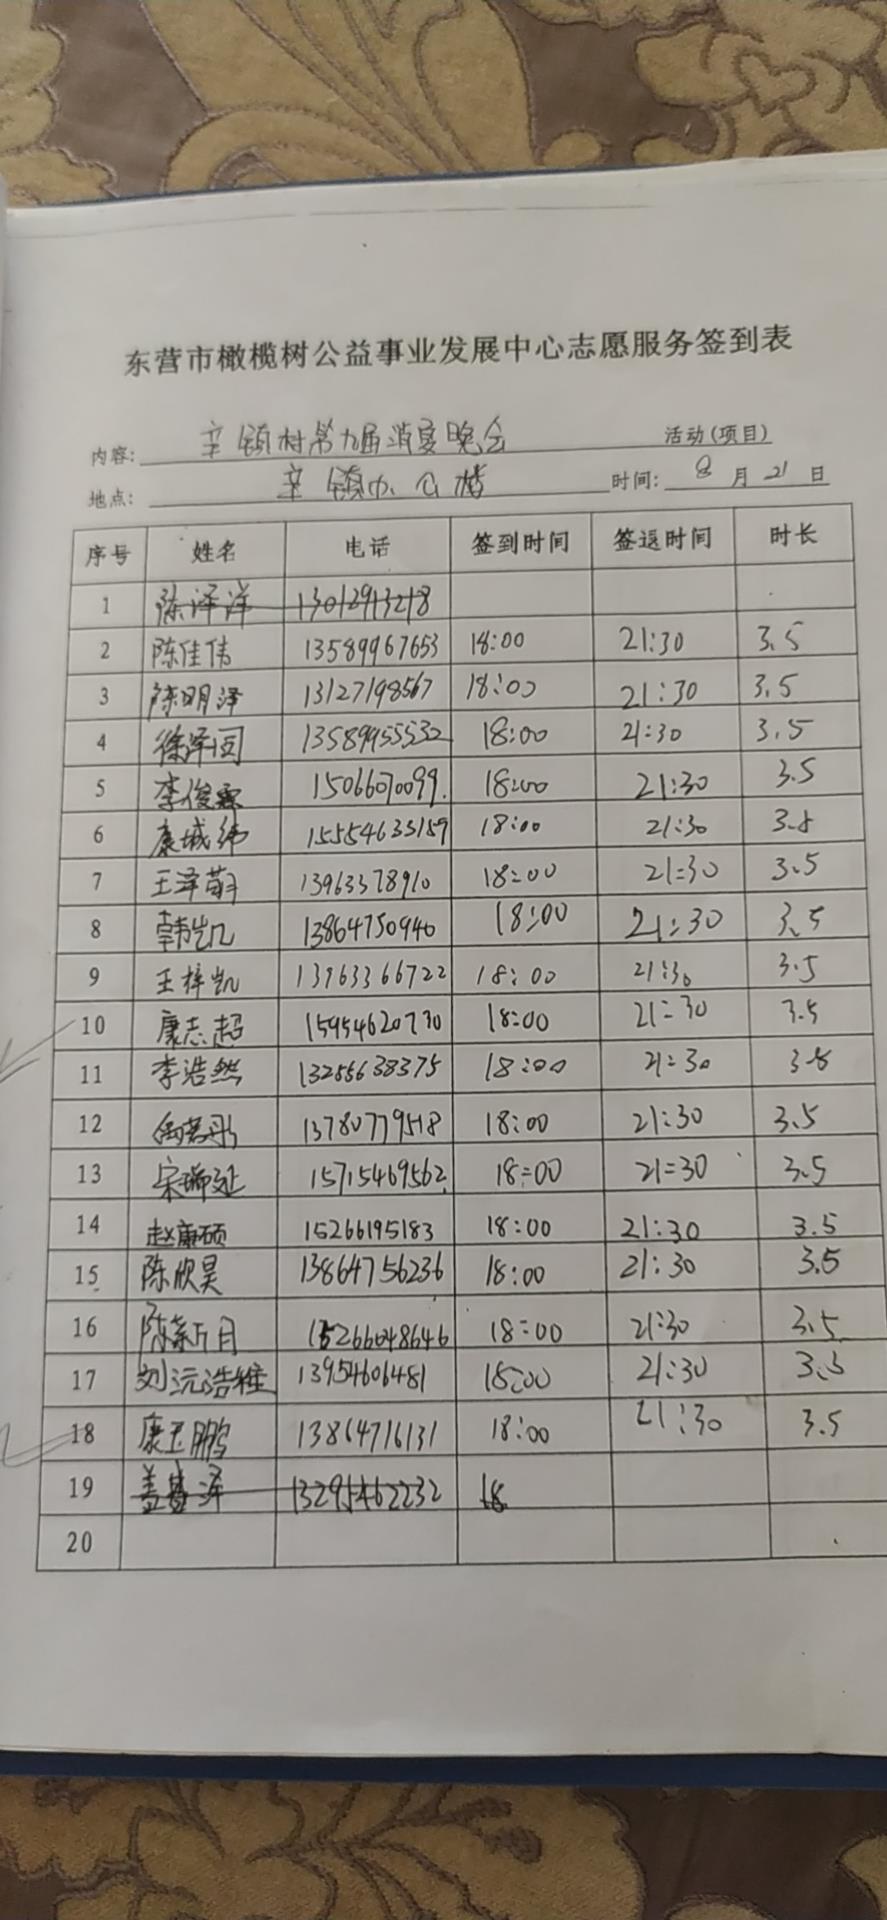 东营市橄榄树公益事业发展中心志愿服务签到表
内容: 辛镇村第九届消夏晚会 活动(项目)
地点: 辛镇办公楼 时间: 8月21日
序号 姓名 电话 签到时间 签退时间 时长
1 陈泽洋 13012913218
2 陈佳伟 13589967653 18:00 21:30 3.5
3 陈明泽 13127198567 18:00 21:30 3.5
4 徐泽 13589955532 18:00 21:30 3.5
5 李俊霖 15066070099. 18:00 21:30 3.5
6 康城纬 15554635159 18:00 21:30 3.5
7 王泽 13963378910 18:00 21:30 3.5
8 韩凯 13864750940 18:00 21:30 3.5
9 王梓凯 13963366722 18:00 21:30 3.5
10 康志超 15954620730 18:00 21:30 3.5
11 李浩然 13256638375 18:00 21:30 3.5
12 13780779518 18:00 21:30 3.5
13 宋瑞延 15715469562 18:00 21:30 3.5
14 赵康硕 15266195183 18:00 21:30 3.5
15 陈欣昊 13864756236 18:00 21:30 3.5
16 陈新月 15266048646 18:00 21:30 3.5
17 刘沅浩雄 13954606481 18:00 21:30 3.5
18 康玉鹏 13864716131 18:00 21:30 3.5
19 盖 泽 13295462232 18
20